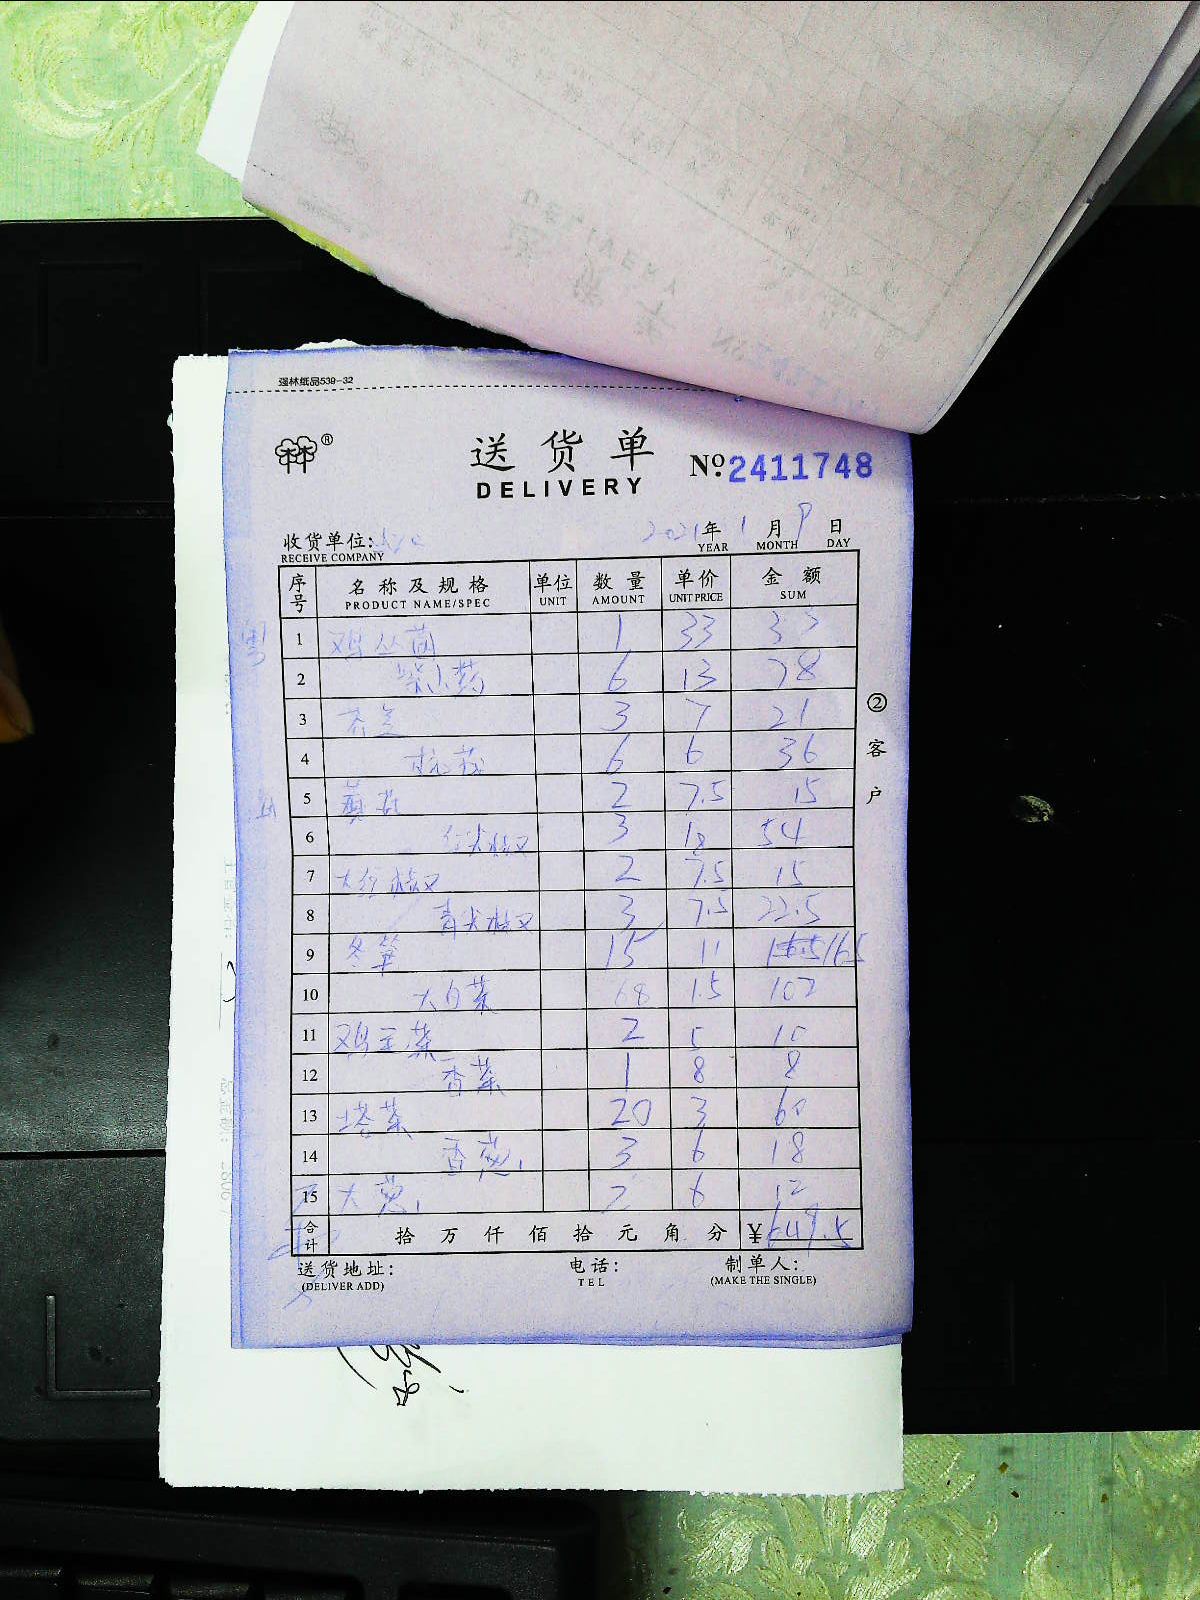 强林纸品539-32
送货单
DELIVERY
No. 2411748
收货单位:
RECEIVE COMPANY
2021年 1月 9日
YEAR MONTH DAY
序号 名称及规格 单位 数量 单价 金额
PRODUCT NAME/SPEC UNIT AMOUNT UNIT PRICE SUM
1 鸡丛菌 1 33 33
2 柴山药 6 13 78
3 3 7 21
4 杭茄 6 6 36
5 黄瓜 2 7.5 15
6 红尖椒 3 18 54
7 大红椒 2 7.5 15
8 青尖椒 3 7.5 22.5
9 冬笋 15 11 165
10 大白菜 68 1.5 102
11 鸡毛菜 2 5 10
12 香菜 1 8 8
13 塔菜 20 3 60
14 香葱 3 6 18
15 大葱 2 6 12
合计 拾 万 仟 佰 拾 元 角 分 ¥649.5
②客户
送货地址: 电话: 制单人:
(DELIVER ADD) TEL (MAKE THE SINGLE)